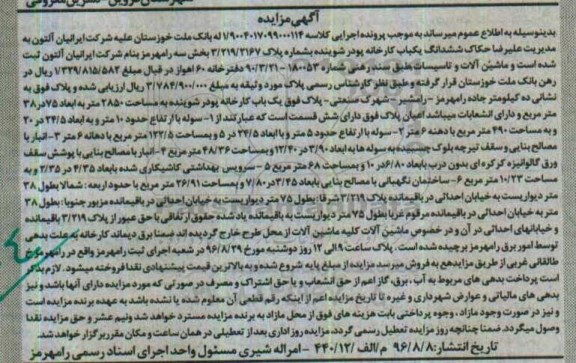 آگهی مزایده
بدینوسیله به اطلاع عموم میرساند به موجب پرونده اجرایی کلاسه ۷۹۰۰۴۰۱۷۰۹۹۰۰۰۱۱۴ له بانک ملت خوزستان علیه شرکت ایرانیان آلتون به
مدیریت علیرضا حکاک ششدانگ یکباب کارخانه پودر شوینده بشماره پلاک ۳/۲۱۹/۲۱۶۷ بخش سه رامهرمز بنام شرکت ایرانیان آلتون ثبت
شده است و ماشین آلات و تاسیسات طبق سند رهنی ۱۸۰۰۵۳-۹۰/۳/۲۱ دفترخانه ۶۰ اهواز در قبال مبلغ ۱/۳۳۹/۸۱۵/۵۸۳ ریال در
رهن بانک ملت خوزستان قرار گرفته و طبق نظر کارشناس رسمی پلاک مورد وثیقه به مبلغ ۳/۷۸۴/۹۰۰/۰۰۰ ریال ارزیابی شده و پلاک فوق به
نشانی ده کیلومتر جاده رامهرمز - رامشیر - شهرک صنعتی - پلاک فوق یک باب کارخانه پودر شوینده به مساحت ۲۸۵۰ متر به ابعاد ۷۵در۳۸
متر مربع و دارای انشعابات میباشد اعیان پلاک فوق دارای شش قسمت است که عبارتند از ۱- سوله با ارتفاع حدود ۱۰ متر و به ابعاد ۲۴/۵ در ۲۰
و به مساحت ۴۹۰ متر مربع با دهنه ۶ متر ۲- سوله با ارتفاع حدود ۵ متر و با ابعاد ۲۴/۵ در ۵ و بمساحت ۱۲۲/۵ متر مربع با دهانه ۶ متر ۳- انبار با
مصالح بنایی و سقف تیرچه بلوک چسبیده به سوله ها به ابعاد ۳/۹۰ در ۱۲/۴۰ و بمساحت ۴۸/۳۶ متر مربع ۴- انبار با مصالح بنایی با پوشش سقف
ورق گالوانیزه کرکره ای بدون درب بابعاد ۶/۸۰در ۱۰ و بمساحت ۶۸ متر مربع ۵- سرویس بهداشتی کاشیکاری شده بابعاد ۴/۳۵ در ۲/۳۵ و به
مساحت ۱۰/۲۳ متر مربع ۶- ساختمان نگهبانی با مصالح بنایی بابعاد ۳/۴۵در ۷/۸۰ و بمساحت ۲۶/۹۱ متر مربع با حدود اربعه : شمالا بطول ۳۸
متر دیواریست به خیابان احداثی در باقیمانده پلاک ۳/۲۱۹ شرقا : بطول ۷۵ متر دیواریست به خیابان احداثی در باقیمانده مزبور جنوبا : بطول ۳۸
متر به خیابان احداثی در باقیمانده مرقوم غربا بطول ۷۵ متر دیواریست به باقیمانده یاد شده حقوق ارتفاقی با حق عبور از پلاک ۳/۲۱۹ باقیمانده
و خیابانهای احداثی در آن و در خصوص ماشین آلات کلیه ماشین آلات از محل طرح خارج گردیده اند ضمنا برق دیماند کارخانه به علت بدهی
توسط امور برق رامهرمز برچیده شده است . پلاک ساعت ۹ الی ۱۲ روز دوشنبه مورخ ۹۶/۸/۲۹ در شعبه اجرای ثبت رامهرمز واقع در رامهرمز خ
طالقانی غربی از طریق مزایده به فروش میرسد مزایده از مبلغ پایه شروع شده و به بالاترین قیمت پیشنهادی نقدا فروخته میشود. لازم بذکر
است پرداخت بدهی های مربوط به آب، برق، گاز اعم از حق انشعاب و یا حق اشتراک و مصرف در صورتی که مورد مزایده دارای آنها باشد و نیز
بدهی های مالیاتی و عوارض شهرداری و غیره تا تاریخ مزایده اعم از اینکه رقم قطعی آن معلوم شده یا نشده باشد به عهده برنده مزایده است
و نیز در صورت وجود مازاد ، وجوه پرداختی بابت هزینه های فوق از محل مازاد به برنده مزایده مسترد خواهد شد ونیم عشر و حق مزایده نقدا
وصول میگردد. ضمنا چنانچه روز مزایده تعطیل رسمی گردد، مزایده روز اداری بعد از تعطیلی در همان ساعت و مکان مقرر برگزار خواهد شد.
تاریخ انتشار: ۹۶/۸/۸ م/الف ۴۴۰/۱۲ - امراله شیری مسئول واحد اجرای اسناد رسمی رامهرمز